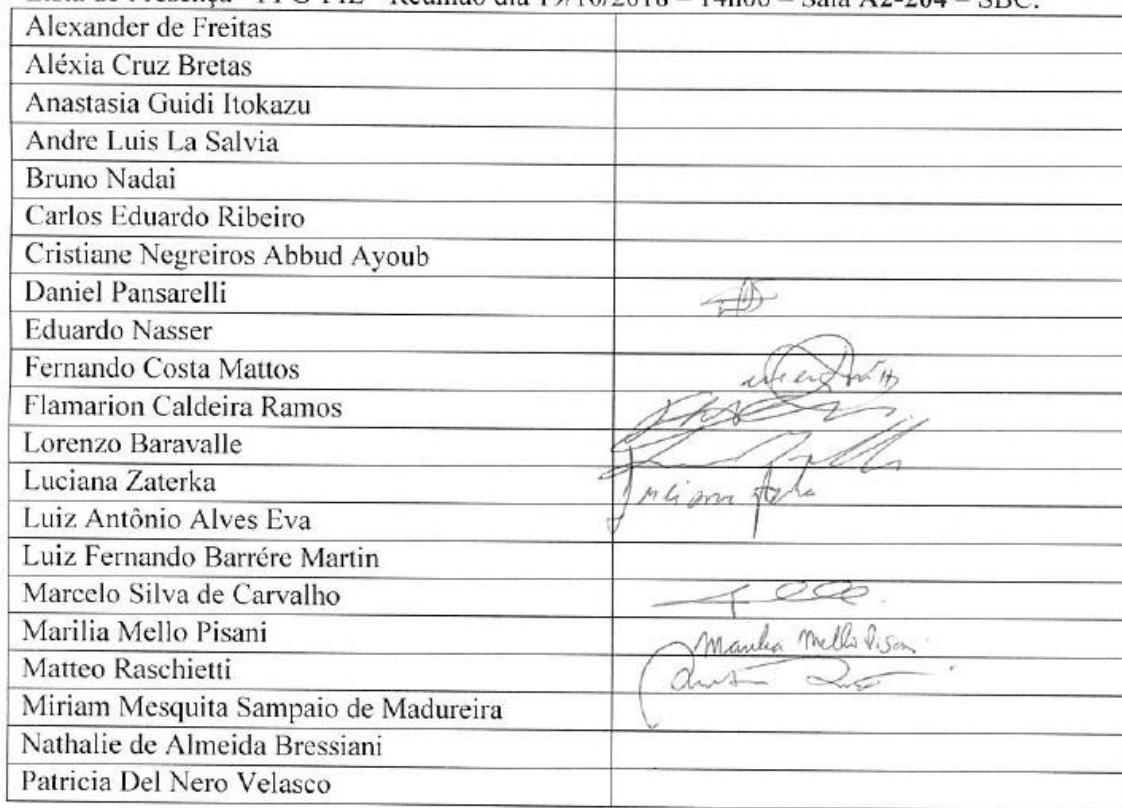 Lista de Presença - PPG-FIL - Reunião dia 19/10/2018 – 14h00 – Sala A2-204 – SBC.
Alexander de Freitas
Aléxia Cruz Bretas
Anastasia Guidi Itokazu
Andre Luis La Salvia
Bruno Nadai
Carlos Eduardo Ribeiro
Cristiane Negreiros Abbud Ayoub
Daniel Pansarelli
Eduardo Nasser
Fernando Costa Mattos
Flamarion Caldeira Ramos
Lorenzo Baravalle
Luciana Zaterka
Luiz Antônio Alves Eva
Luiz Fernando Barrére Martin
Marcelo Silva de Carvalho
Marilia Mello Pisani Marilia Mello Pisani
Matteo Raschietti
Miriam Mesquita Sampaio de Madureira
Nathalie de Almeida Bressiani
Patricia Del Nero Velasco